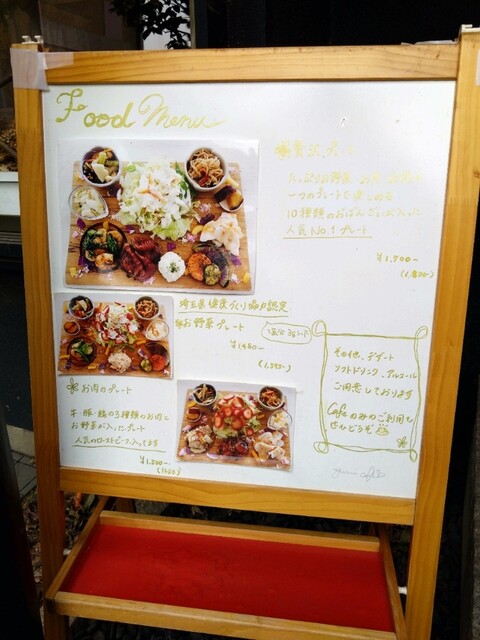 Food Menu
贅沢プレート
たっぷりお野菜
一つのプレートで楽しめる
10種類のおばんざいが入った
人気No.1プレート
¥1,700-
埼玉県健康づくり協力認定
お野菜プレート
¥1,480-
お肉のプレート
牛・豚・鶏の3種類のお肉と
お野菜が入ったプレート
人気のローストビーフ入ってます
その他、デザート
ソフトドリンク、アルコール
ご用意しております
Cafeのみのご利用も
ぜひどうぞ